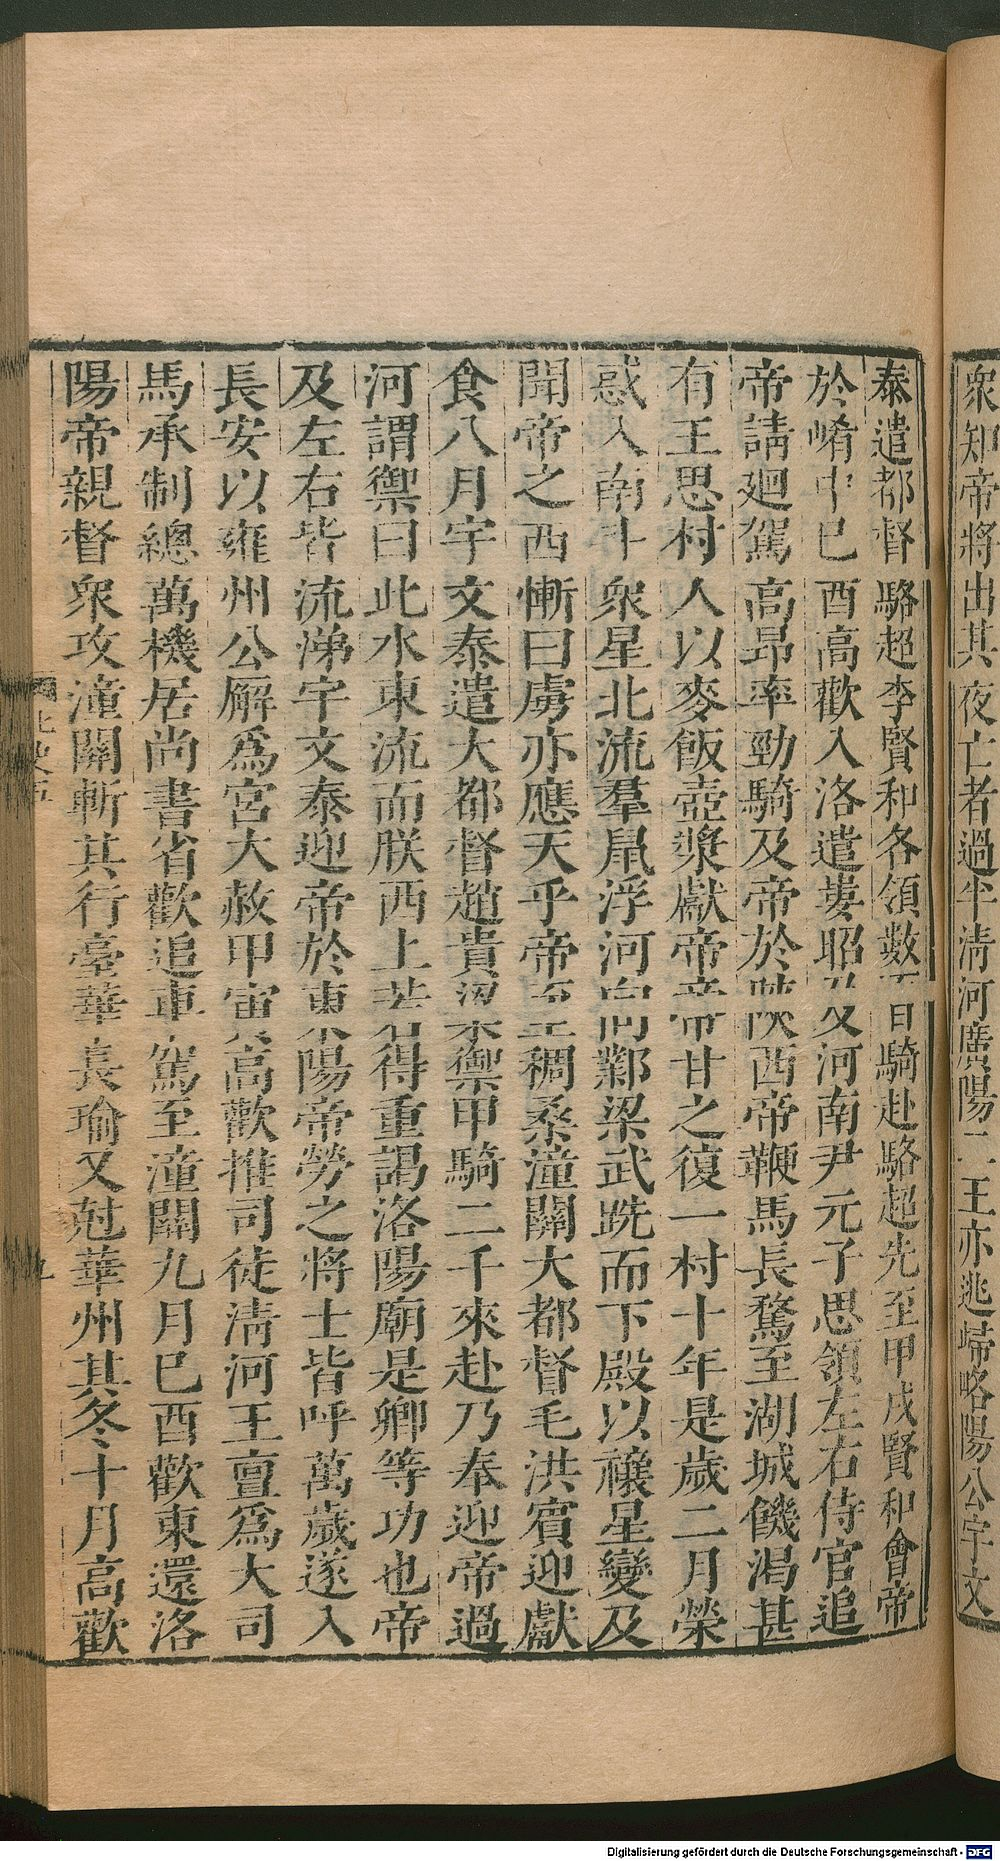 衆知帝將出其夜亡者過半淸河廣陽二王亦逃歸略陽公宇文
泰遣都督駱超李賢和各領數百騎赴駱超先至甲戌賢和會帝
於崤中已酉高歡入洛遣婁昭及河南尹元子思領左右侍官追
帝請廻駕高昂率勁騎及帝於陜西帝鞭馬長騖至湖城饑渴甚
有王思村人以麥飯壺漿獻帝帝甘之復一村十年是歲二月熒
惑入南斗衆星北流羣鼠浮河向鄴梁武跣而下殿以禳星變及
聞帝之西慚曰虜亦應天乎帝至稠桑潼關大都督毛洪賓迎獻
食八月宇文泰遣大都督趙貴梁禦甲騎二千來赴乃奉迎帝過
河謂禦曰此水東流而朕西上若得重謁洛陽廟是卿等功也帝
及左右皆流涕宇文泰迎帝於東陽帝勞之將士皆呼萬歲遂入
長安以雍州公廨爲宮大赦甲寅高歡推司徒淸河王亶爲大司
馬承制總萬機居尚書省歡追車駕至潼關九月已酉歡東還洛
陽帝親督衆攻潼關斬其行臺華長瑜又尅華州其冬十月高歡
北史五
九
Digitalisierung gefördert durch die Deutsche Forschungsgemeinschaft - DFG